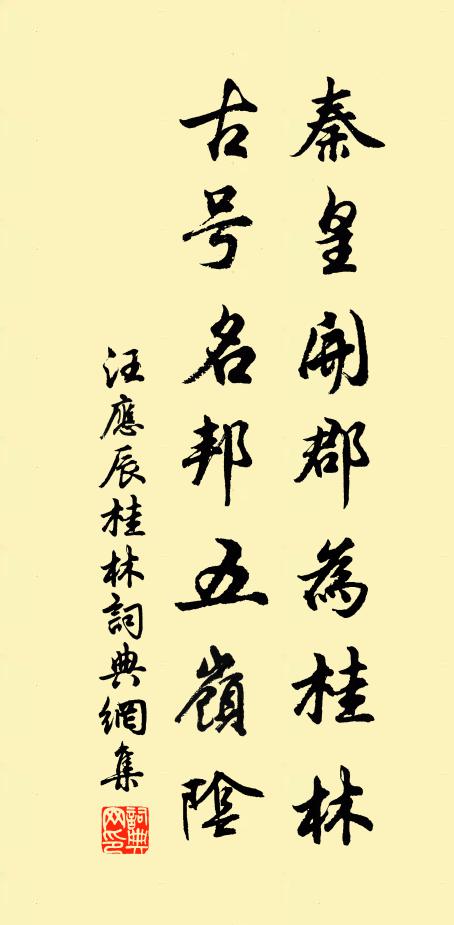 秦皇開郡為桂林
古号名邦五嶺陰
汪應辰桂林詞典網集
詞典網印